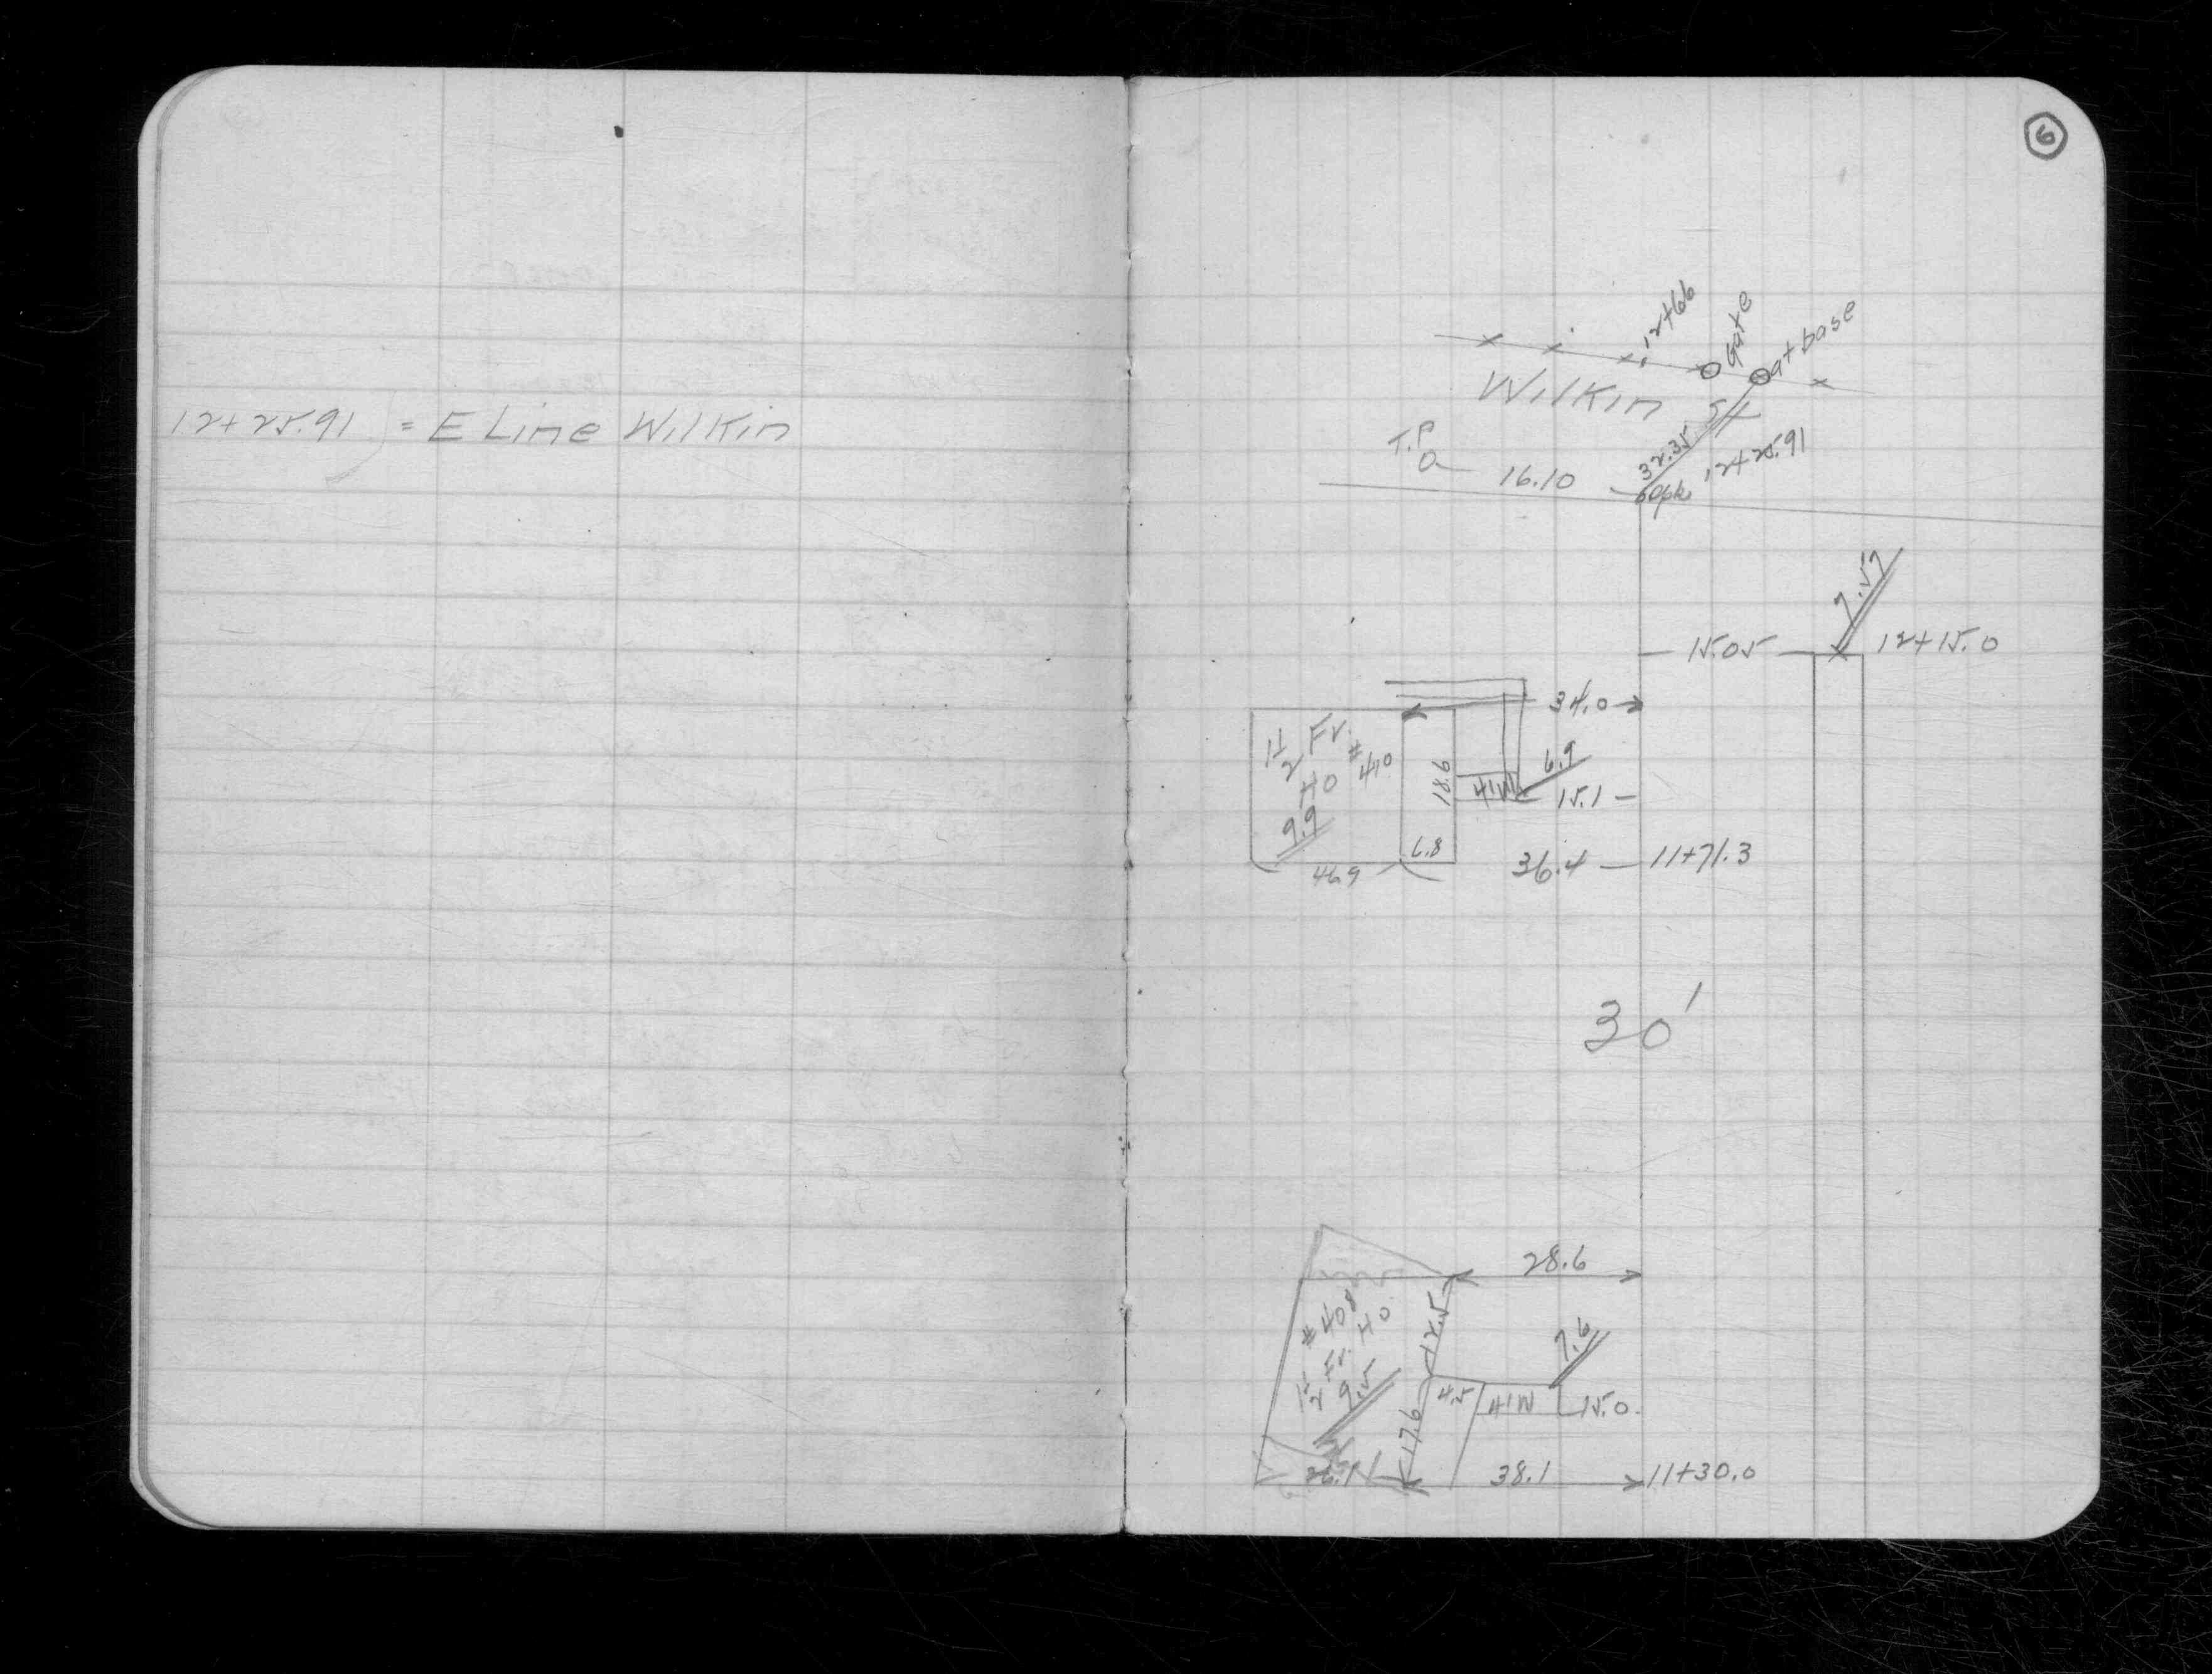 12+25.91 = E Line Wilkin
6
12+66
Gate
at base
Wilkin
T.P.
16.10
32.35
12+25.91
7.57
15.05
12+15.0
34.0
1 1/2 Fr.
Ho
#410
9.9
18.6
6.9
4'W
15.1
6.8
46.9
36.4
11+71.3
30'
28.6
#408
1 1/2 Fr. Ho
9.5
12.5
7.6
4.5
4'W
15.0
17.6
26.1
38.1
11+30.0